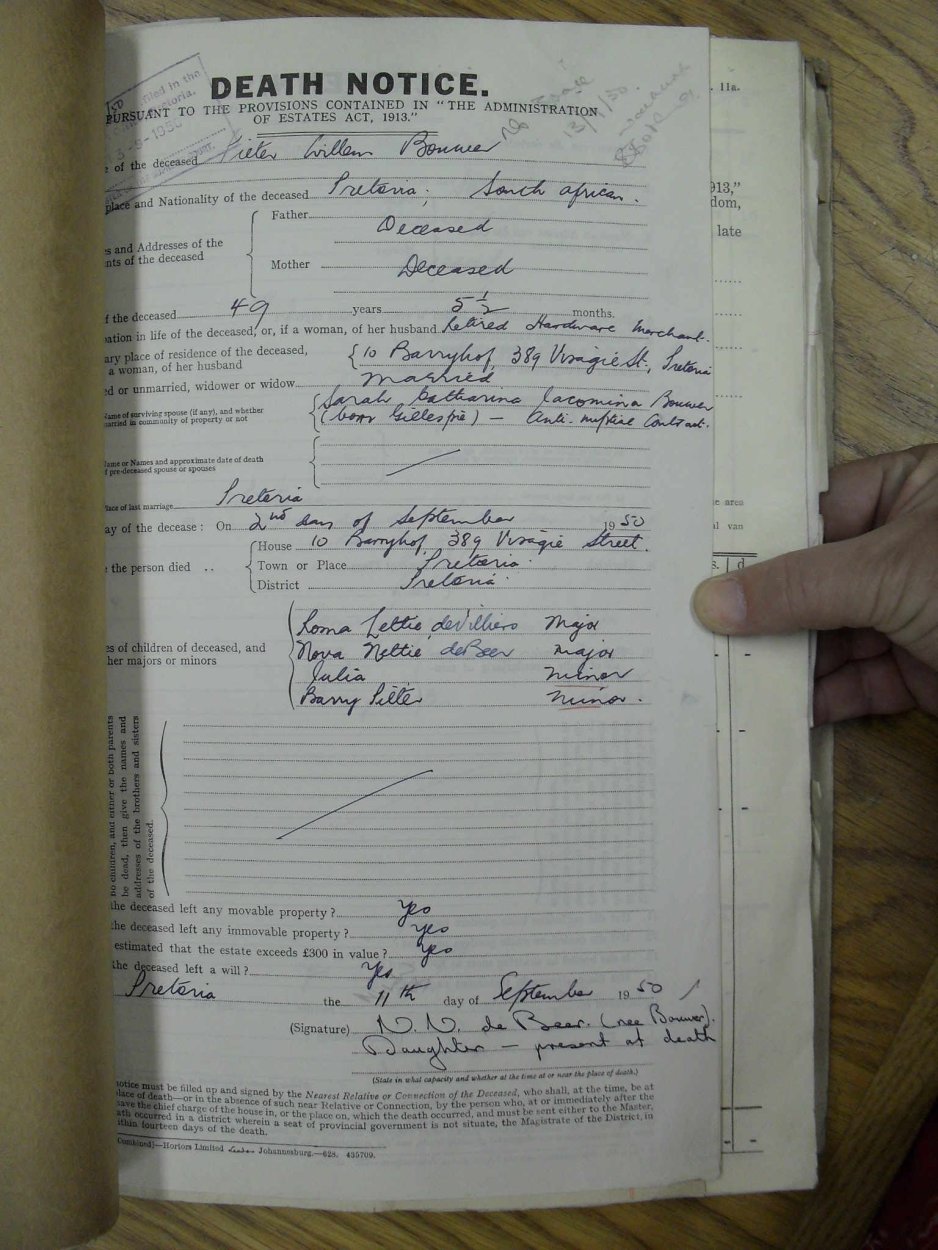 DEATH NOTICE.
PURSUANT TO THE PROVISIONS CONTAINED IN "THE ADMINISTRATION
OF ESTATES ACT, 1913."
of the deceased Pieter Willem Bouwer
place and Nationality of the deceased Pretoria; South African.
Father Deceased
s and Addresses of the
nts of the deceased
Mother Deceased
f the deceased 49 years 5½ months.
ation in life of the deceased, or, if a woman, of her husband Retired Hardware Merchant.
ary place of residence of the deceased,
a woman, of her husband
10 Barryhof, 389 Visagie St., Pretoria
ed or unmarried, widower or widow Married
Name of surviving spouse (if any), and whether
married in community of property or not
Sarah Catharina Jacomina Bouwer
(born Gillespie) — Anti-nuptial Contract.
Name or Names and approximate date of death
of pre-deceased spouse or spouses
Place of last marriage Pretoria
ay of the decease: On 2nd day of September 1950
House 10 Barryhof, 389 Visagie Street.
e the person died .. Town or Place Pretoria.
District Pretoria.
es of children of deceased, and
her majors or minors
Roma Lettie de Villiers Major
Nova Nettie de Beer major
Julia minor
Barry Pieter minor.
no children, and either or both parents
be dead, then give the names and
addresses of the brothers and sisters
of the deceased.
the deceased left any movable property? Yes
the deceased left any immovable property? Yes
estimated that the estate exceeds £300 in value? Yes
the deceased left a will? Yes
Pretoria the 11th day of September 1950
(Signature) N. N. de Beer. (nee Bouwer).
Daughter — present at death
(State in what capacity and whether at the time at or near the place of death.)
notice must be filled up and signed by the Nearest Relative or Connection of the Deceased, who shall, at the time, be at
lace of death—or in the absence of such near Relative or Connection, by the person who, at or immediately after the
ave the chief charge of the house in, or the place on, which the death occurred, and must be sent either to the Master,
ath occurred in a district wherein a seat of provincial government is not situate, the Magistrate of the District, in
ithin fourteen days of the death.
Combined)—Hortors Limited Johannesburg.—628. 435709.
11a.
913,"
dom,
late
e area
l van
s. d